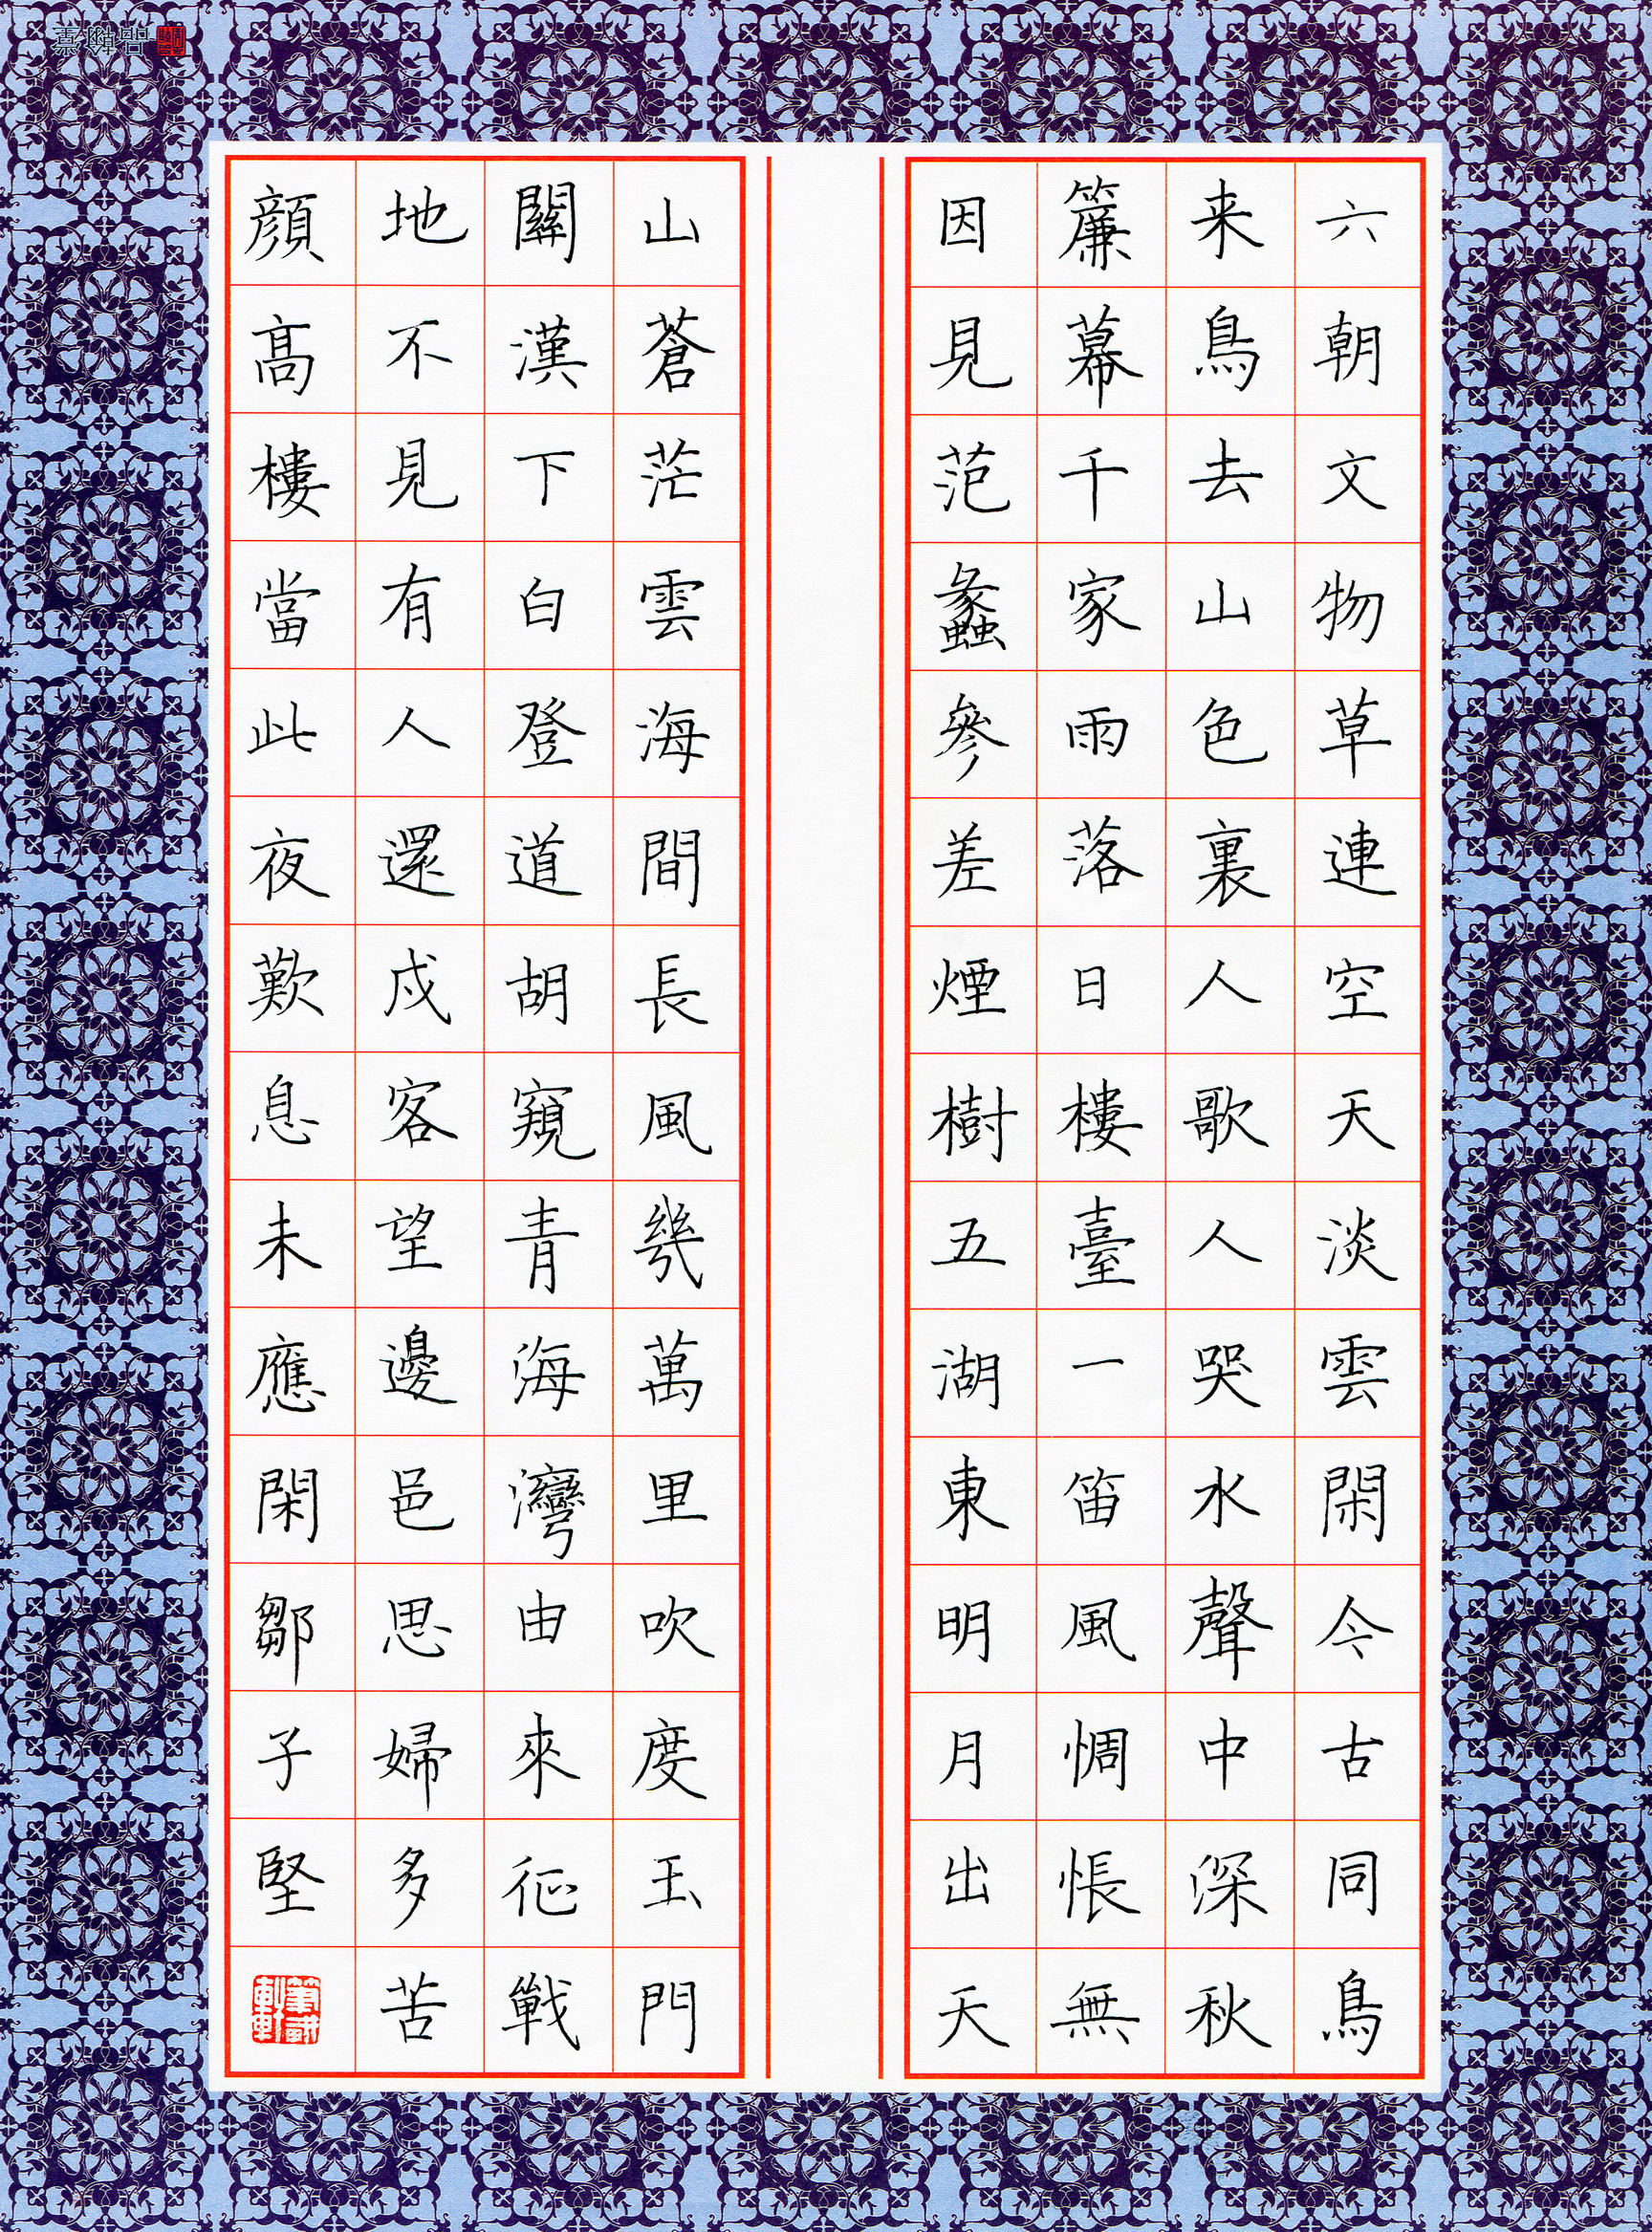 六朝文物草連空天淡雲閑今古同鳥
来鳥去山色裏人歌人哭水聲中深秋
簾幕千家雨落日樓臺一笛風惆悵無
因見范蠡參差煙樹五湖東明月出天
山蒼茫雲海間長風幾萬里吹度玉門
關漢下白登道胡窺青海灣由來征戰
地不見有人還戍客望邊邑思婦多苦
顏高樓當此夜歎息未應閑鄒子堅